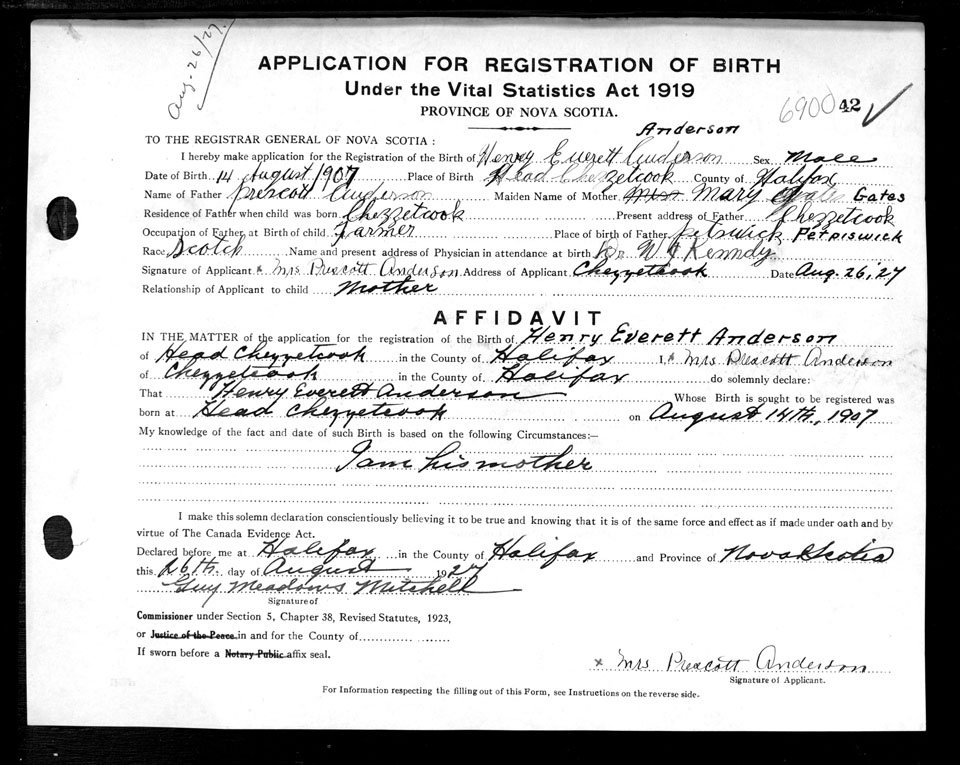 Aug. 26/27.
APPLICATION FOR REGISTRATION OF BIRTH
Under the Vital Statistics Act 1919
PROVINCE OF NOVA SCOTIA.
690042
Anderson
TO THE REGISTRAR GENERAL OF NOVA SCOTIA:
I hereby make application for the Registration of the Birth of Henry Everett Anderson Sex Male
Date of Birth 14 August 1907 Place of Birth Head Chezzetcook County of Halifax
Name of Father Prescott Anderson Maiden Name of Mother Miss Mary Gates Gates
Residence of Father when child was born Chezzetcook Present address of Father Chezzetcook
Occupation of Father at Birth of child Farmer Place of birth of Father Petpiswick
Race Scotch Name and present address of Physician in attendance at birth Dr W Kenndy
Signature of Applicant x Mrs Prescott Anderson Address of Applicant Chezzetcook Date Aug. 26, '27
Relationship of Applicant to child Mother
AFFIDAVIT
IN THE MATTER of the application for the registration of the Birth of Henry Everett Anderson
of Head Chezzetcook in the County of Halifax I, x Mrs Prescott Anderson
of Chezzetcook in the County of Halifax do solemnly declare:
That Henry Everett Anderson Whose Birth is sought to be registered was
born at Head Chezzetcook on August 14th, 1907
My knowledge of the fact and date of such Birth is based on the following Circumstances:—
I am his mother
I make this solemn declaration conscientiously believing it to be true and knowing that it is of the same force and effect as if made under oath and by
virtue of The Canada Evidence Act.
Declared before me at Halifax in the County of Halifax and Province of Nova Scotia
this 26th. day of August 1927
Guy Meadows Mitchell
Signature of
Commissioner under Section 5, Chapter 38, Revised Statutes, 1923,
or Justice of the Peace in and for the County of
If sworn before a Notary Public affix seal.
x Mrs Prescott Anderson
Signature of Applicant.
For Information respecting the filling out of this Form, see Instructions on the reverse side.